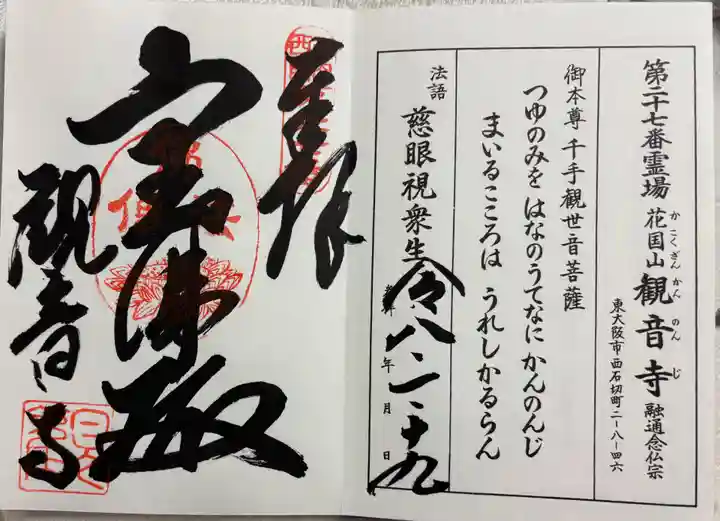 第二十七番霊場 花国山 観音寺 融通念仏宗
かこくざん かんのんじ
東大阪市西石切町二-八-四六
御本尊 千手観世音菩薩
つゆのみを はなのうてなに かんのんじ
まいるこころは うれしかるらん
法語 慈眼視衆生
令八・一・十九
年 月 日
奉拝
観音寺